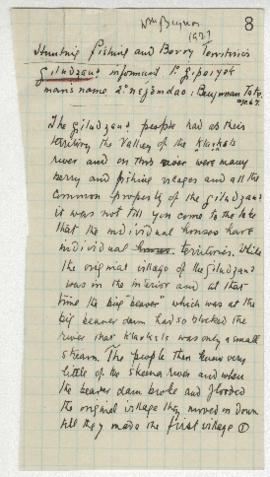 Wm Beynon
1927
8
Hunting Fishing and Berry Territories
Giludzau informant P.
man's name
The Giludzau people had as their
territory the Valley of the Klaxksls
river and on this river were many
berry and fishing villages and all the
common property of the Giludzau
it was not till you come to the lake
that the individual houses have
individual territories. While
the original village of the Giludzau
was in the interior and at that
time the big "beaver" which was at the
big beaver dam had so blocked the
river that Klaxksls was only a small
stream. The people then knew very
little of the Skeena river and when
the beaver dam broke and flooded
the original village they moved on down
till they made the first village ①